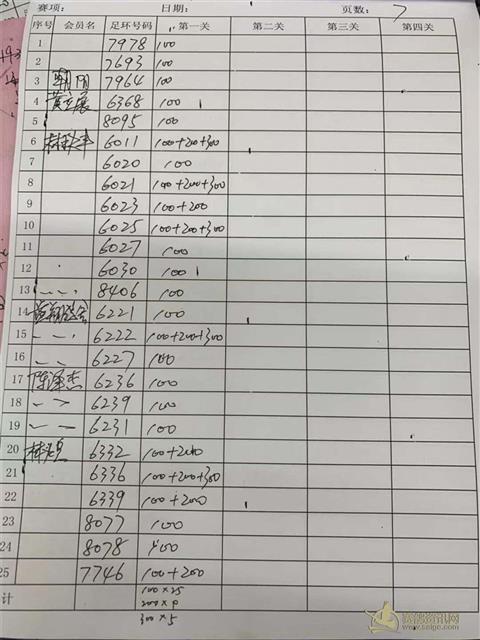 赛项: 日期: 页数: 7
序号 会员名 足环号码 第一关 第二关 第三关 第四关
1 7978 100
2 7693 100
3 朝阳 7964 100
4 6368 100
5 8095 100
6 6011 100+200+300
7 6020 100
8 6021 100+200+300
9 6023 100+200
10 6025 100+200+300
11 6027 100
12 6030 100
13 8406 100
14 6221 100
15 6222 100+200+300
16 6227 100
17 陈泽杰 6236 100
18 6239 100
19 6231 100
20 6332 100+200
21 6336 100+200+300
22 6339 100+200
23 8077 100
24 8078 100
25 7746 100+200
计 100×25
300×5
赛鸽资讯网
www.saige.com